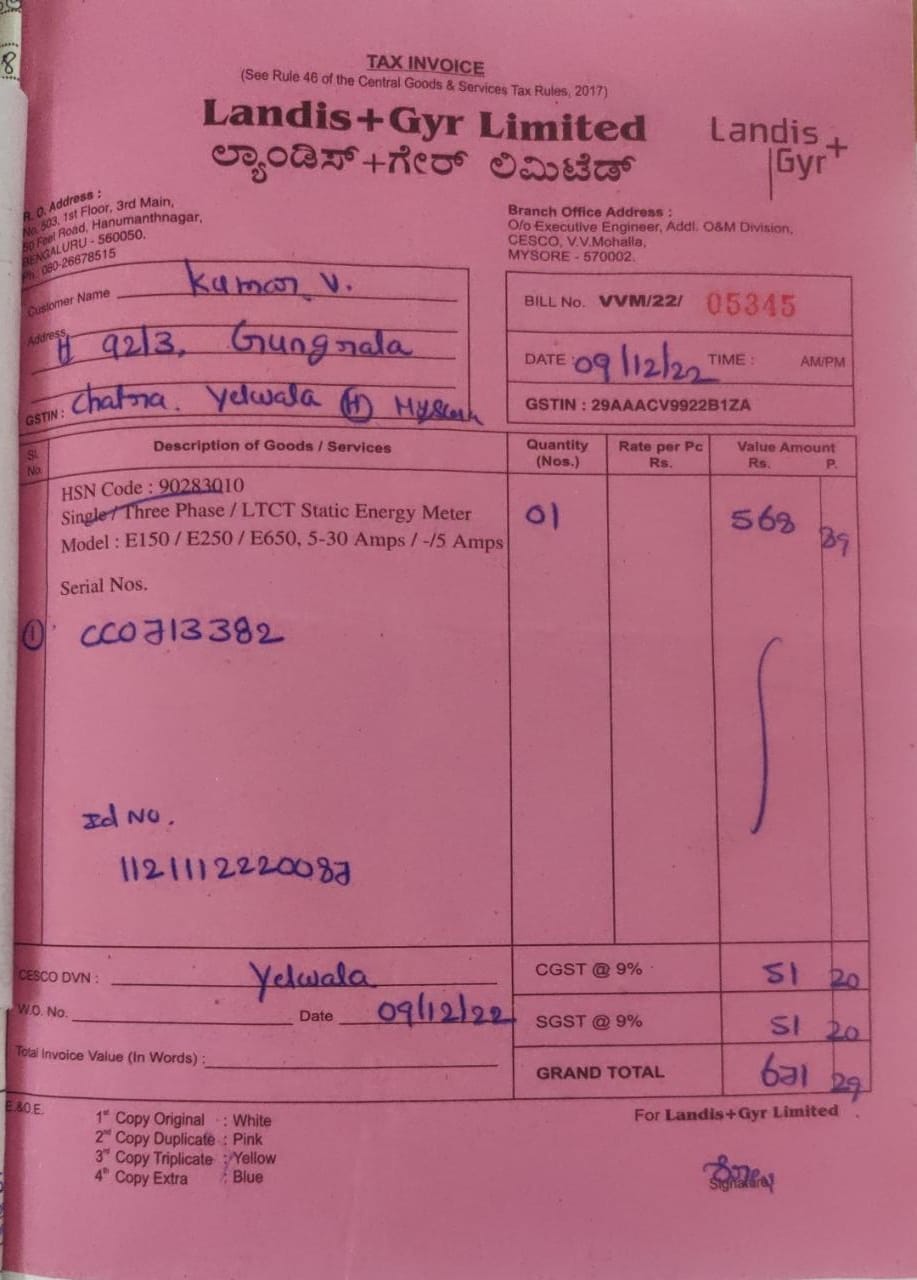 8
TAX INVOICE
(See Rule 46 of the Central Goods & Services Tax Rules, 2017)
Landis+Gyr Limited
ಲ್ಯಾಂಡಿಸ್+ಗೇರ್ ಲಿಮಿಟೆಡ್
Landis+
Gyr
R. O. Address :
No. 503, 1st Floor, 3rd Main,
50 Feet Road, Hanumanthnagar,
BENGALURU - 560050.
Ph : 080-26678515
Branch Office Address :
O/o Executive Engineer, Addl. O&M Division,
CESCO, V.V.Mohalla,
MYSORE - 570002.
Customer Name Kumar V.
Address 92/3,
GSTIN : Yelwala (H)
BILL No. VVM/22/ 05345
DATE : 09/12/22 TIME : AM/PM
GSTIN : 29AAACV9922B1ZA
Sl. No. Description of Goods / Services Quantity (Nos.) Rate per Pc Rs. Value Amount Rs. P.
HSN Code : 90283010
Single / Three Phase / LTCT Static Energy Meter 01 568 89
Model : E150 / E250 / E650, 5-30 Amps / -/5 Amps
Serial Nos.
1 CC0713382
Id No.
1121112220087
CESCO DVN : Yelwala
W.O. No. Date 09/12/22
Total Invoice Value (In Words) :
CGST @ 9% 51 20
SGST @ 9% 51 20
GRAND TOTAL 671 29
E.&O.E.
1st Copy Original : White
2nd Copy Duplicate : Pink
3rd Copy Triplicate : Yellow
4th Copy Extra : Blue
For Landis+Gyr Limited
Signature